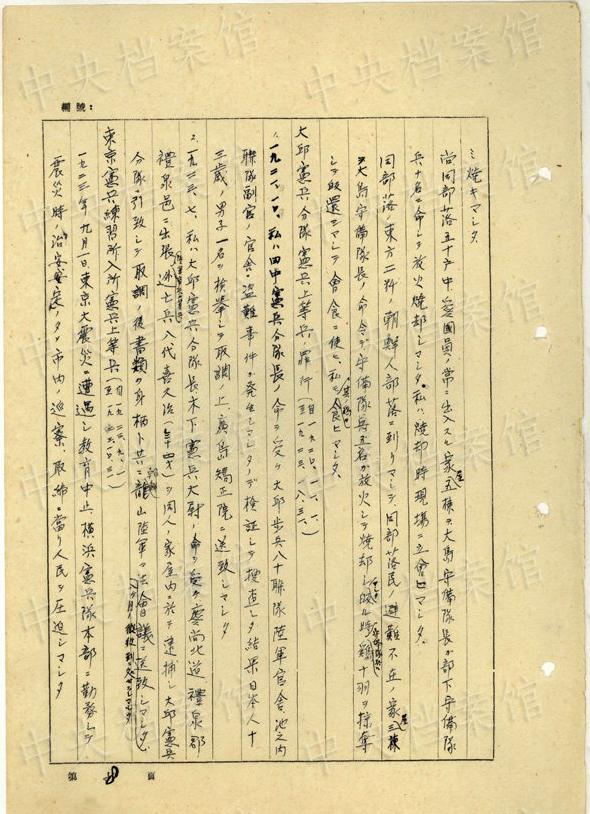 中央档案馆
編號:
ミ焼キマシタ
尚同部落五十戸中愛國員ノ常ニ出入スル家屋五棟ヲ大島守備隊長ガ部下守備隊
兵十名ニ命シ放火焼却シマシタ。私ハ焼却時現場ニ立會ヒマシタ。
同部落ノ東方二粁ノ朝鮮人部落ニ到リマシテ同部落民ノ避難不在ノ家屋三棟
ヲ大島守備隊長ノ命令デ守備隊兵五名ガ放火シテ焼却シ鶏十羽ヲ掠奪
シテ皈還シマシテ會食ニ使ヒ私モ食ヒマシタ。
大邱憲兵分隊憲兵上等兵ノ罪行
1.一九二一、一〇、私ハ田中憲兵分隊長ノ命ヲ受ケ大邱歩兵八十聯隊陸軍官舎池之内
聯隊副官ノ官舎ニ盗難事件ガ発生シマシタデ検証シテ捜査シタ結果日本人十
三歳ノ男子一名ヲ検挙シテ取調ノ上、廣島矯正院ニ送致シマシタ
2.一九二三、七、私ハ大邱憲兵分隊長木下憲兵大尉ノ命ヲ受ケ慶尚北道禮泉郡
禮泉邑ニ出張シ逃亡兵八代喜久治ヲ同人ノ家屋内ニ於テ逮捕シ大邱憲兵
分隊ニ引致シテ取調ノ後書類ヲ身柄ト共ニ龍山陸軍軍法會議ニ送致シマシタ
東京憲兵練習所入所憲兵上等兵
一九二三年九月一日東京大震災ニ遭遇シ教育中止、横浜憲兵隊本部ニ勤務シテ
震災時ノ治安安定ノタメ市内ノ巡察、取締ニ當リ人民ヲ圧迫シマシタ
第 8 頁